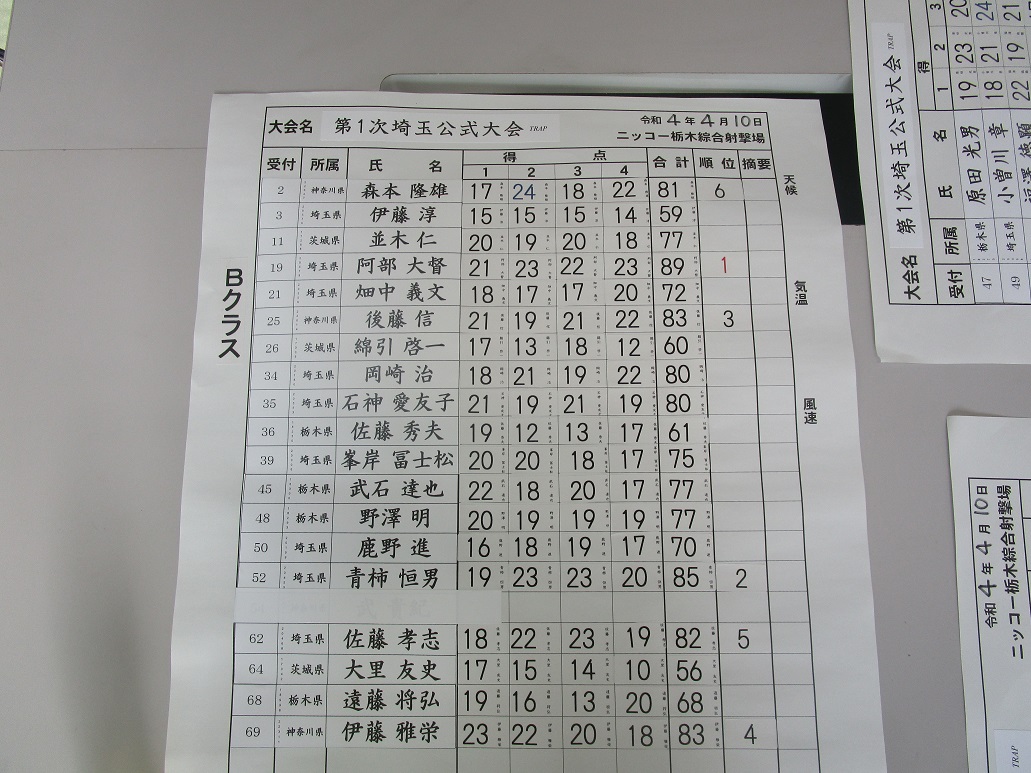 大会名 第1次埼玉公式大会 TRAP 令和 4 年 4 月 10 日
ニッコー栃木綜合射撃場
受付 所属 氏 名 得 点 合計 順位 摘要
1 2 3 4
2 神奈川県 森本 隆雄 17 24 18 22 81 6
3 埼玉県 伊藤 淳 15 15 15 14 59
11 茨城県 並木 仁 20 19 20 18 77
19 埼玉県 阿部 大督 21 23 22 23 89 1
21 埼玉県 畑中 義文 18 17 17 20 72
25 神奈川県 後藤 信 21 19 21 22 83 3
26 茨城県 綿引 啓一 17 13 18 12 60
34 埼玉県 岡崎 治 18 21 19 22 80
35 埼玉県 石神 愛友子 21 19 21 19 80
36 栃木県 佐藤 秀夫 19 12 13 17 61
39 埼玉県 峯岸 冨士松 20 20 18 17 75
45 栃木県 武石 達也 22 18 20 17 77
48 栃木県 野澤 明 20 19 19 19 77
50 埼玉県 鹿野 進 16 18 19 17 70
52 埼玉県 青柿 恒男 19 23 23 20 85 2
62 埼玉県 佐藤 孝志 18 22 23 19 82 5
64 茨城県 大里 友史 17 15 14 10 56
68 栃木県 遠藤 将弘 19 16 13 20 68
69 神奈川県 伊藤 雅栄 23 22 20 18 83 4
Bクラス
天候
気温
風速
大会名 第1次埼玉公式大会 TRAP
受付 所属 氏 名 得
1 2 3
47 栃木県 原田 光男 19 23 20
49 埼玉県 小曽川 章 18 21 24
22 19 21
令和 4 年 4 月 10 日
ニッコー栃木綜合射撃場
TRAP